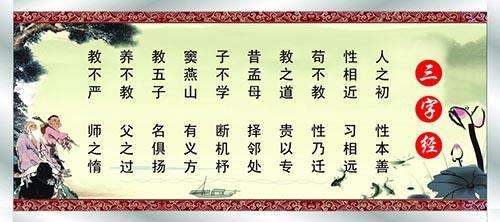 三字经
人之初 性本善
性相近 习相远
苟不教 性乃迁
教之道 贵以专
昔孟母 择邻处
子不学 断机杼
窦燕山 有义方
教五子 名俱扬
养不教 父之过
教不严 师之惰